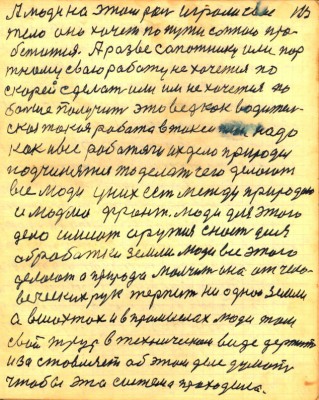 А люди на этом рап играли свое 113
тело оно хочет по пути сотою про
бится. А разве сапожнику или пор
тному свою работу не хочется по
скорей сделат или им не хочется по
болше получит это ведь как водител
ская такая работа в такси надо
как и все работяги их дело природы
подчинятся то делат чего делают
все люди у них ест между природою
и людмы фронт. люди для этого
дела имеют оружия снаст для
обработки земли люди все этого
делают а природа молчит она от чело
веческих рук терпит не одною земли
а в шахтах и в промыслах люди там
свой труд в техническом виде держат
и заставляет об этом деле думат
чтобы эта система проходила.